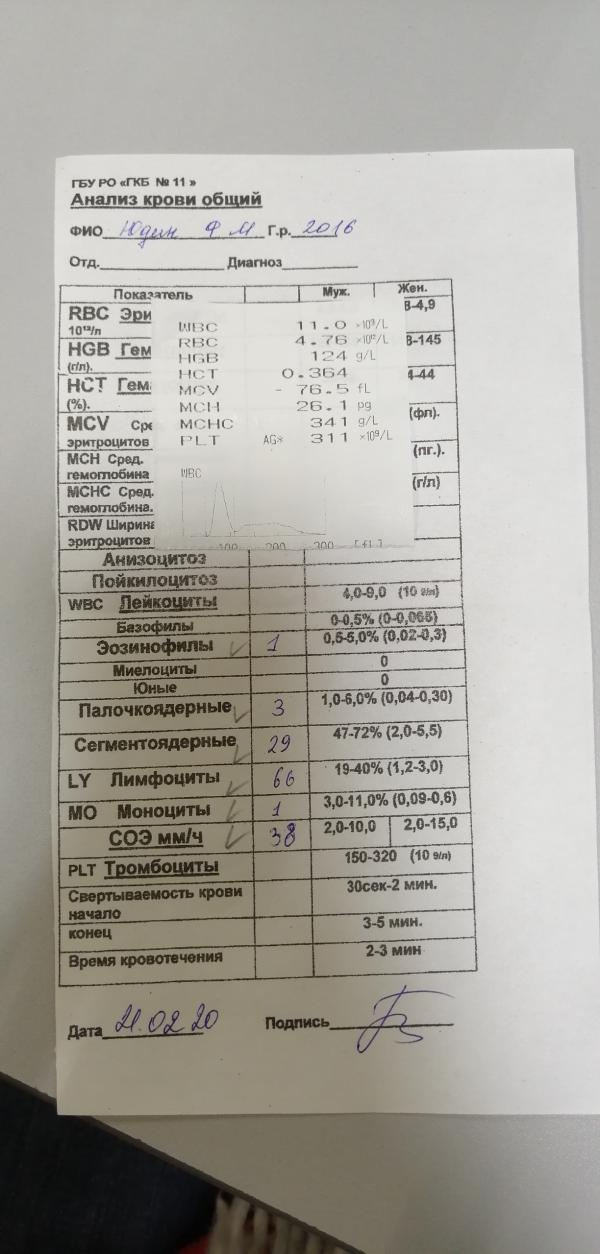 ГБУ РО «ГКБ № 11 »
Анализ крови общий
ФИО Юдин Ф М Г.р. 2016
Отд. Диагноз
Показатель Муж. Жен.
RBC Эри 8-4,9
10¹²/л
HGB Гем 8-145
(г/л).
HCT Гема 4-44
(%).
MCV Сре (фл).
эритроцитов
MCH Сред. (пг.).
гемоглобина
MCHC Сред. (г/л)
гемоглобина.
RDW Ширина
эритроцитов
WBC 11.0 ×10⁹/L
RBC 4.76 ×10¹²/L
HGB 124 g/L
HCT 0.364
MCV - 76.5 fL
MCH 26.1 pg
MCHC 341 g/L
PLT AG* 311 ×10⁹/L
WBC
100 200 300 [fL]
Анизоцитоз
Пойкилоцитоз
WBC Лейкоциты 4,0-9,0 (10 9/л)
Базофилы 0-0,5% (0-0,065)
Эозинофилы 1 0,5-5,0% (0,02-0,3)
Миелоциты 0
Юные 0
Палочкоядерные 3 1,0-6,0% (0,04-0,30)
Сегментоядерные 29 47-72% (2,0-5,5)
LY Лимфоциты 66 19-40% (1,2-3,0)
МО Моноциты 1 3,0-11,0% (0,09-0,6)
СОЭ мм/ч 38 2,0-10,0 2,0-15,0
PLT Тромбоциты 150-320 (10 9/л)
Свертываемость крови 30сек-2 мин.
начало
конец 3-5 мин.
Время кровотечения 2-3 мин
Дата 21.02.20 Подпись